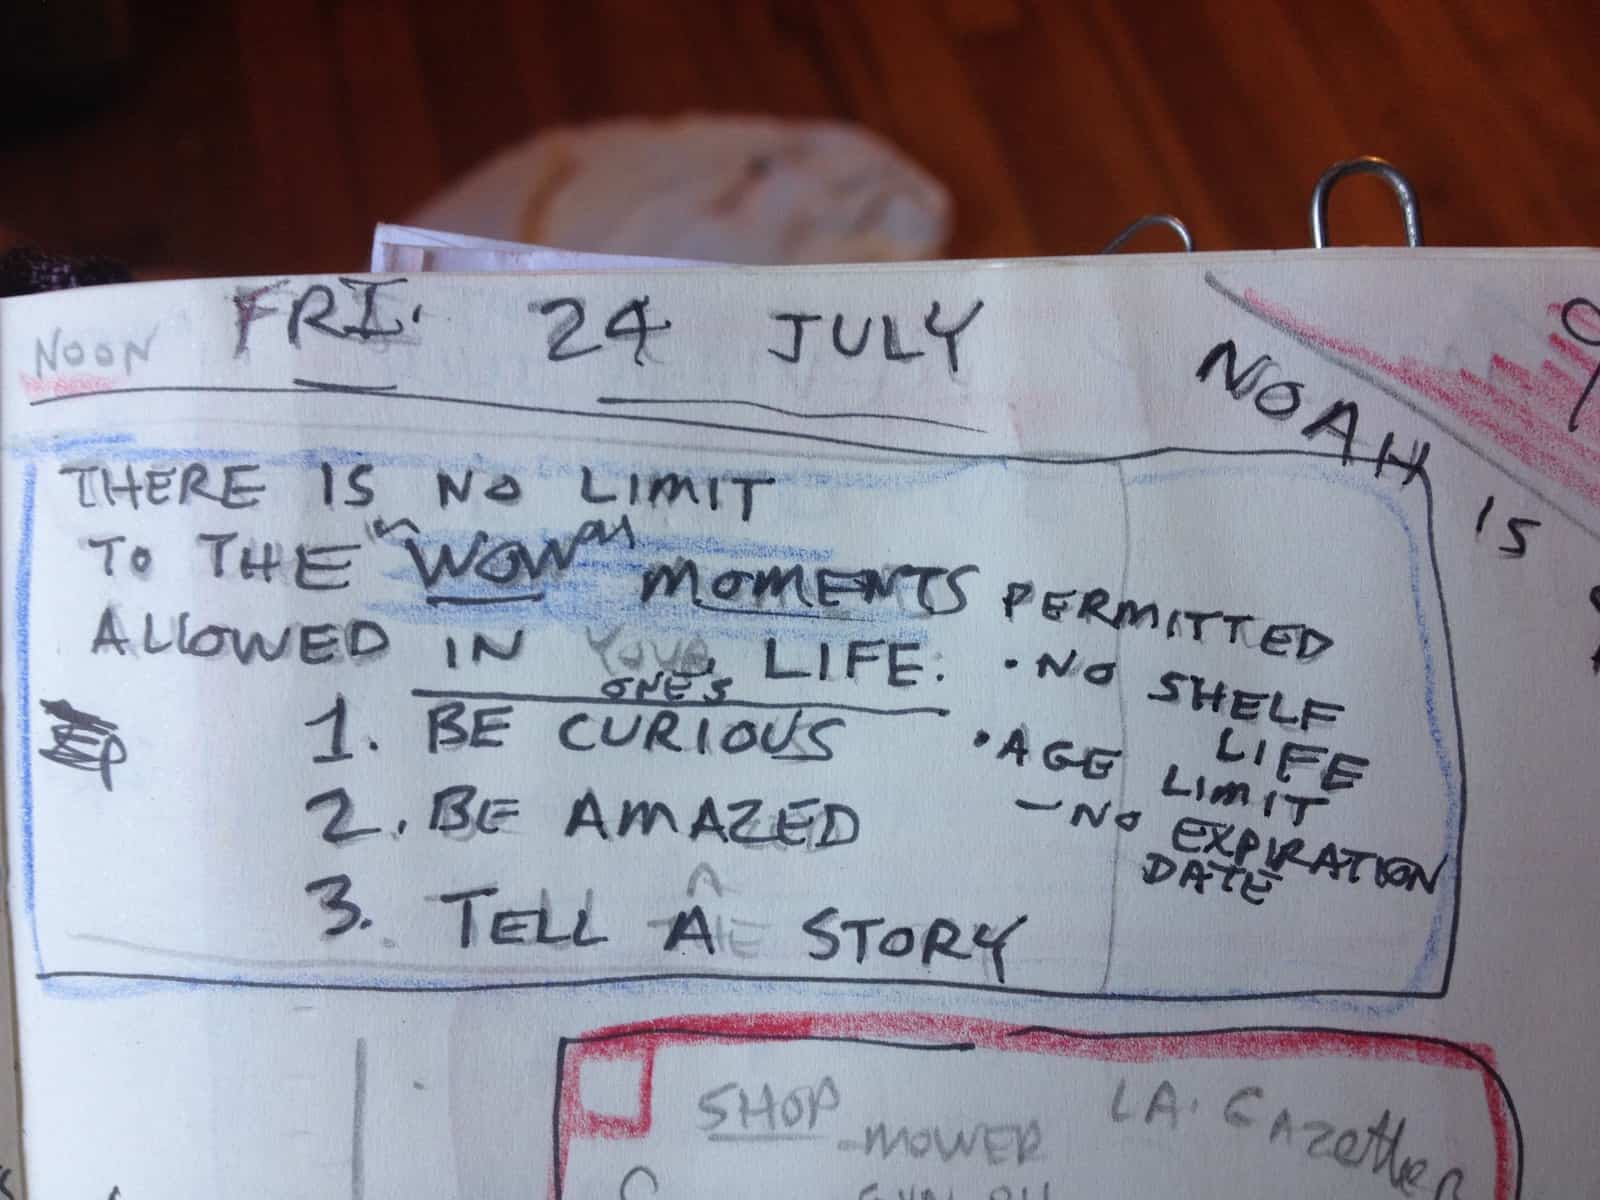 NOON FRI. 24 JULY
NOAH IS
THERE IS NO LIMIT
TO THE "WOW" MOMENTS PERMITTED
ALLOWED IN YOUR LIFE.
ONE'S
1. BE CURIOUS
2. BE AMAZED
3. TELL A STORY
• NO SHELF
LIFE
• AGE LIMIT
- NO EXPIRATION
DATE
SHOP LA. GAZette
- MOWER